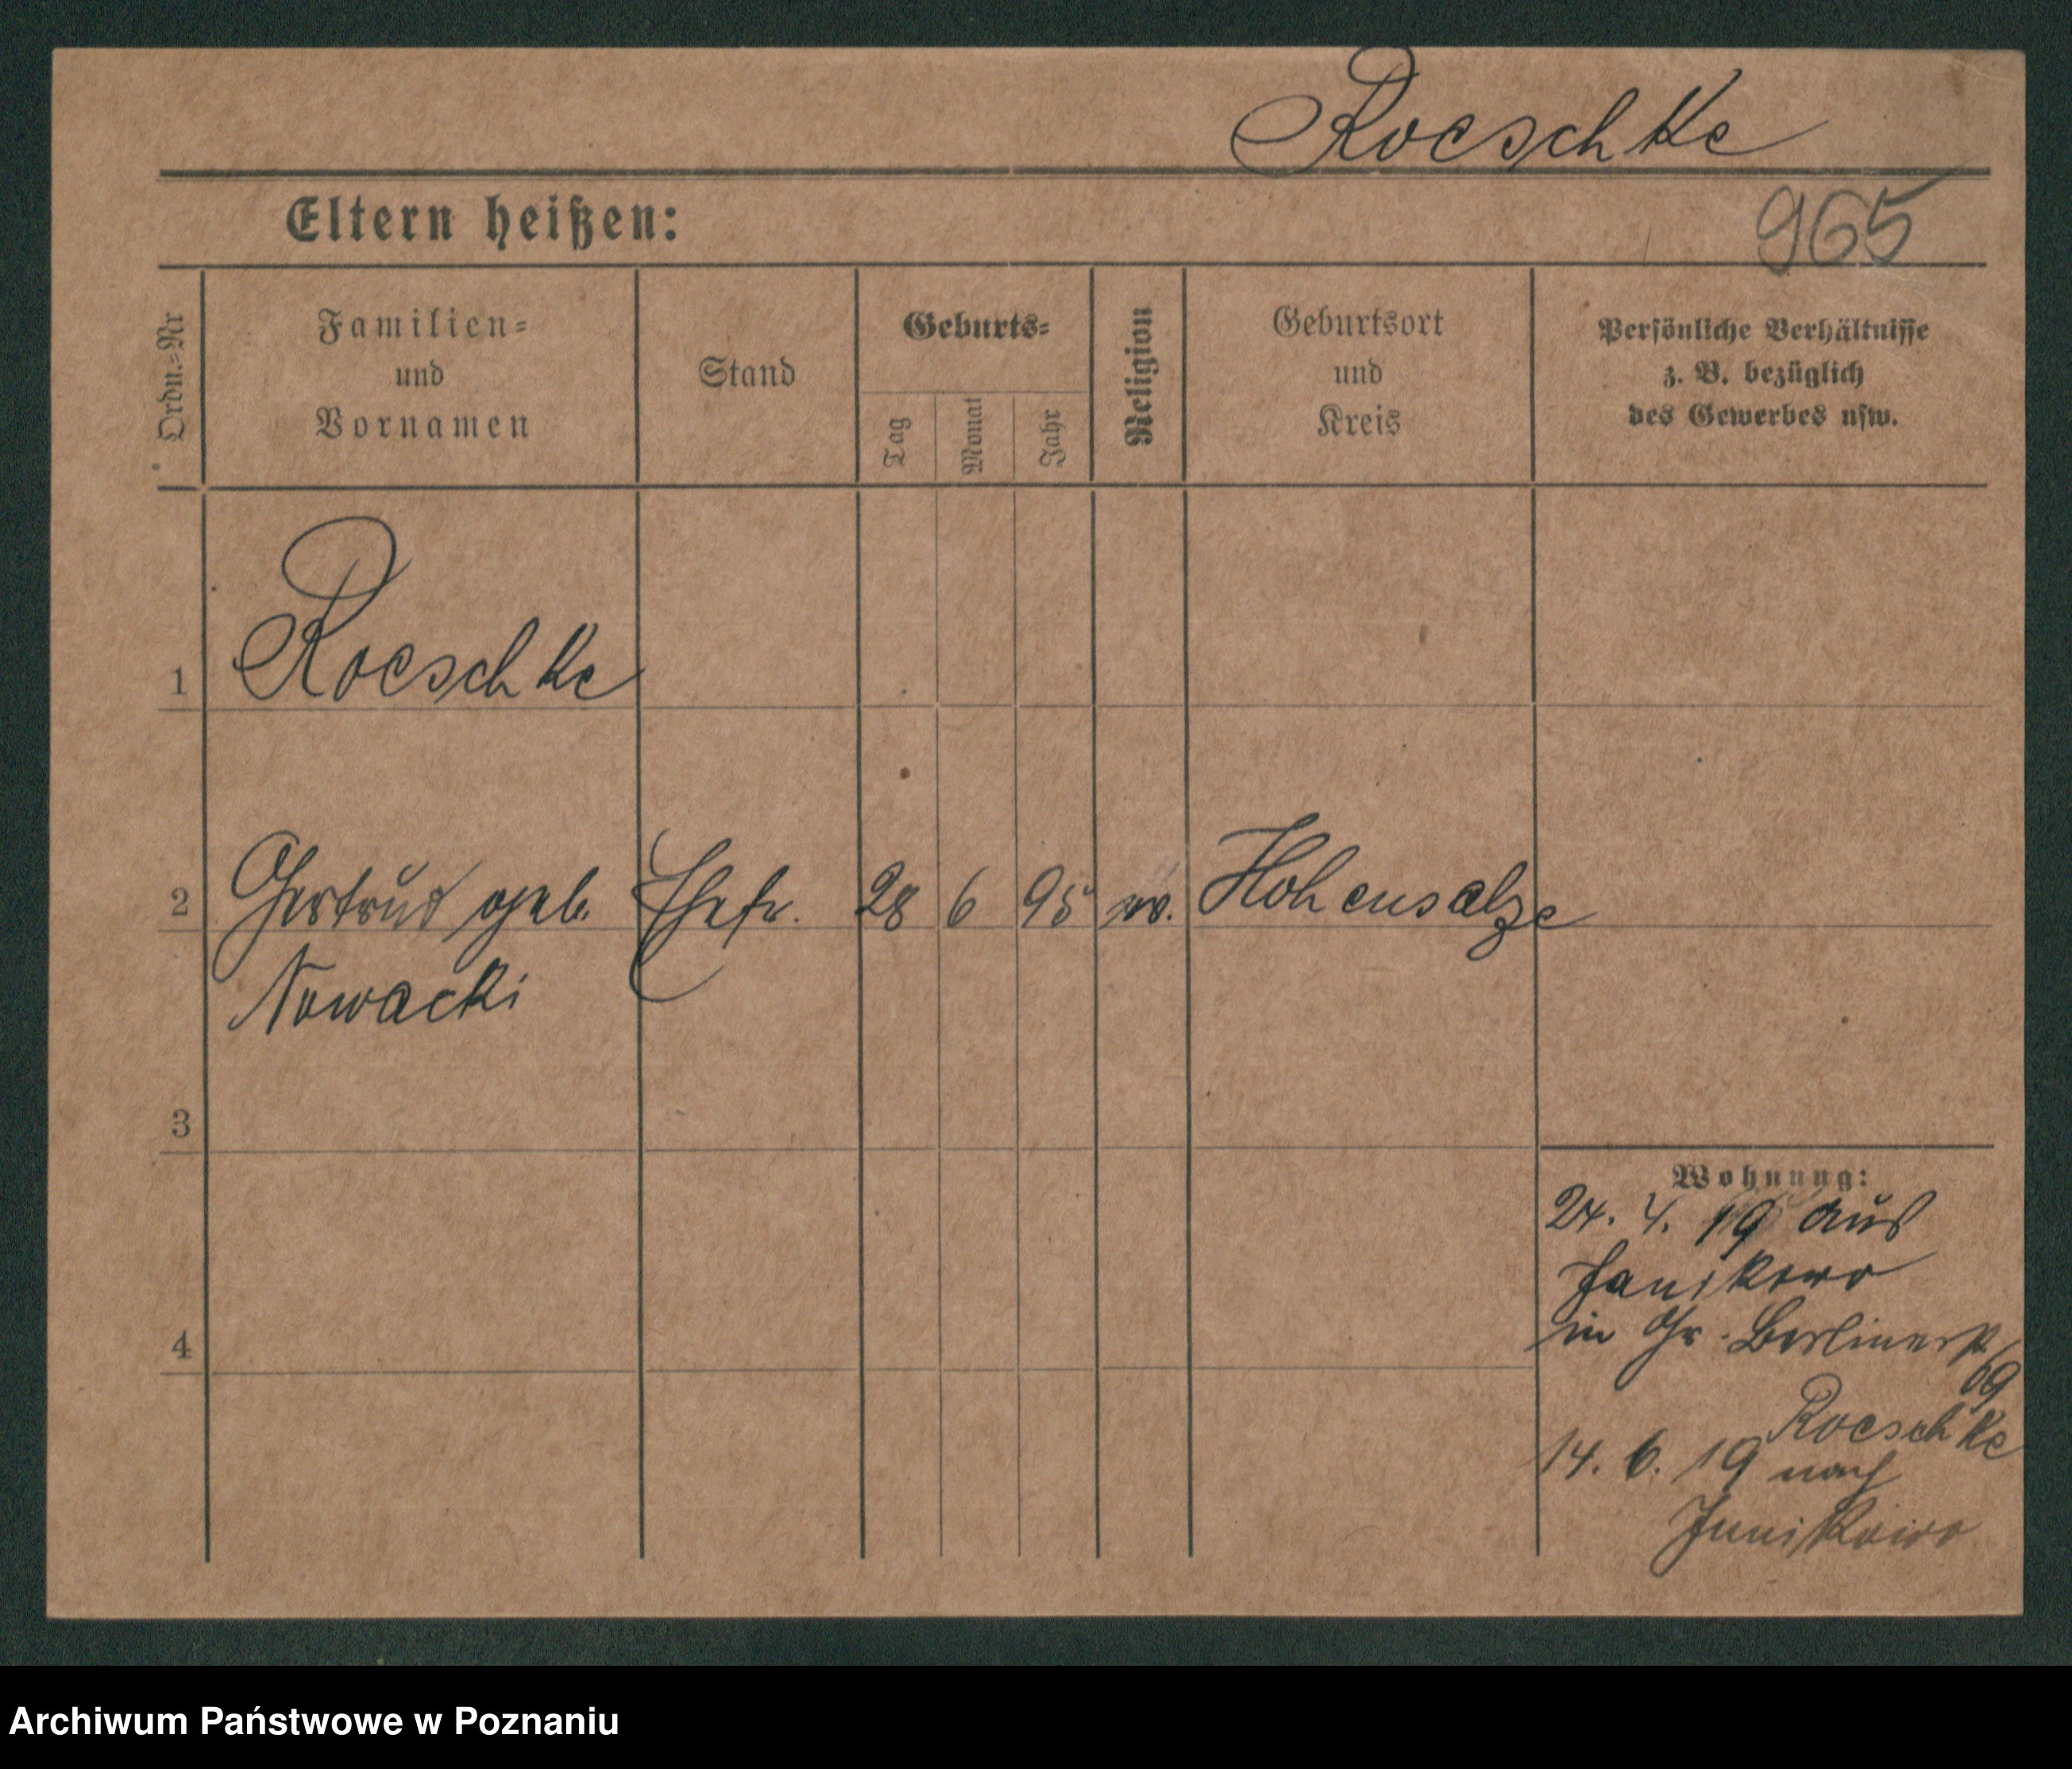 Roeschke
Eltern heißen:
965
Ordn.=Nr
Familien=
und
Vornamen
Stand
Geburts=
Tag
Monat
Jahr
Religion
Geburtsort
und
Kreis
Persönliche Verhältnisse
z. B. bezüglich
des Gewerbes usw.
1
Roeschke
2
Gertrud geb. Ehefr. 28 6 95 Hohensalza
Nowacki
3
4
Wohnung:
24. 4. 19 aus
Janikowo
in Gr. Berlinerstr
69
Roeschke
14. 6. 19 nach
Junikowo
Archiwum Państwowe w Poznaniu